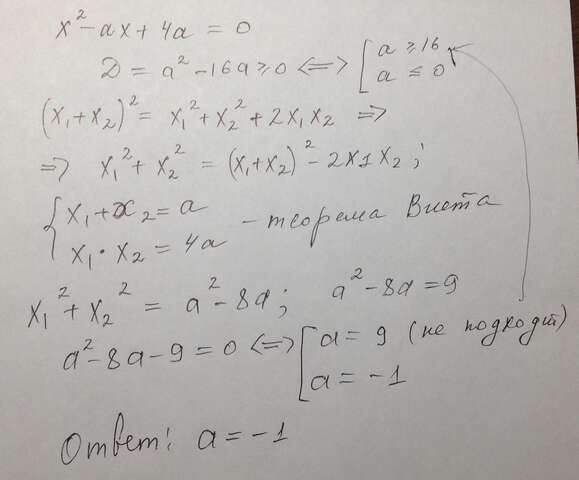 x² - ax + 4a = 0
D = a² - 16a ≥ 0 <=> [ a ≥ 16
a ≤ 0
(x₁ + x₂)² = x₁² + x₂² + 2x₁x₂ =>
=> x₁² + x₂² = (x₁ + x₂)² - 2x1x₂ ;
{ x₁ + x₂ = a
x₁ · x₂ = 4a - теорема Виета
x₁² + x₂² = a² - 8a ; a² - 8a = 9
a² - 8a - 9 = 0 <=> [ a = 9 (не подходит)
a = -1
Ответ: a = -1